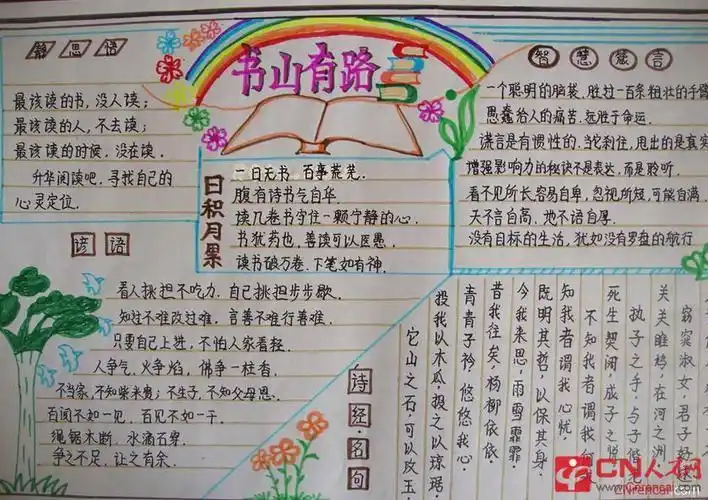 书山有路
静思语
最该读的书，没人读；
最该读的人，不去读；
最该读的时候，没在读。
升华阅读吧，寻找自己的
心灵定位。
智慧箴言
一个聪明的脑袋，胜过一百条粗壮的手臂
愚蠢给人的痛苦，远胜于命运.
谎言是有惯性的，当它刹住，甩出的是真实
增强影响力的秘诀不是表达，而是聆听.
看不见所长容易自卑，忽视所短，可能自满.
天不言自高、地不语自厚.
没有目标的生活，犹如没有罗盘的航行
日积月累
一日无书　百事荒芜.
腹有诗书气自华.
读几卷书守住一颗宁静的心.
书犹药也，善读可以医愚.
读书破万卷、下笔如有神.
谚语
看人挑担不吃力，自己挑担步步歇.
知过不难改过难，言善不难行善难.
只要自己上进，不怕人家看轻.
人争气，火争焰，佛争一柱香.
不当家，不知柴米贵；不生子，不知父母恩.
百闻不如一见，百见不如一干.
绳锯木断，水滴石穿.
争之不足，让之有余.
诗经·名句
窈窕淑女，君子好
关关雎鸠，在河之洲
执子之手，与子偕老
死生契阔，成子之悦
不知我者谓我何
知我者谓我心忧
既明其哲，以保其身.
今我来思，雨雪霏霏
昔我往矣，杨柳依依.
青青子衿，悠悠我心.
投我以木瓜，投之以琼琚.
它山之石，可以攻玉.
CN人人网